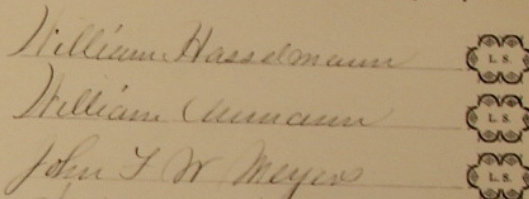 William Hasselmann L. S.
William Aumann L. S.
John F W Meyers L. S.